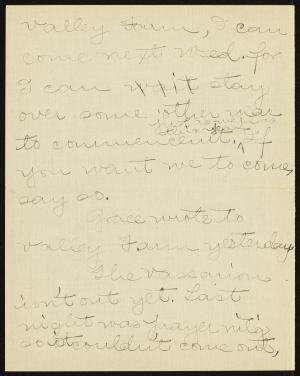 Valley Farm, I can
come next Wed. for
I can wait stay
over some other year
to commencement. If
you want me to come,
say so.
Grace wrote to
Valley Farm yesterday
The Vassarion
isn't out yet. Last
night was prayer mt'g
so it couldn't come out,